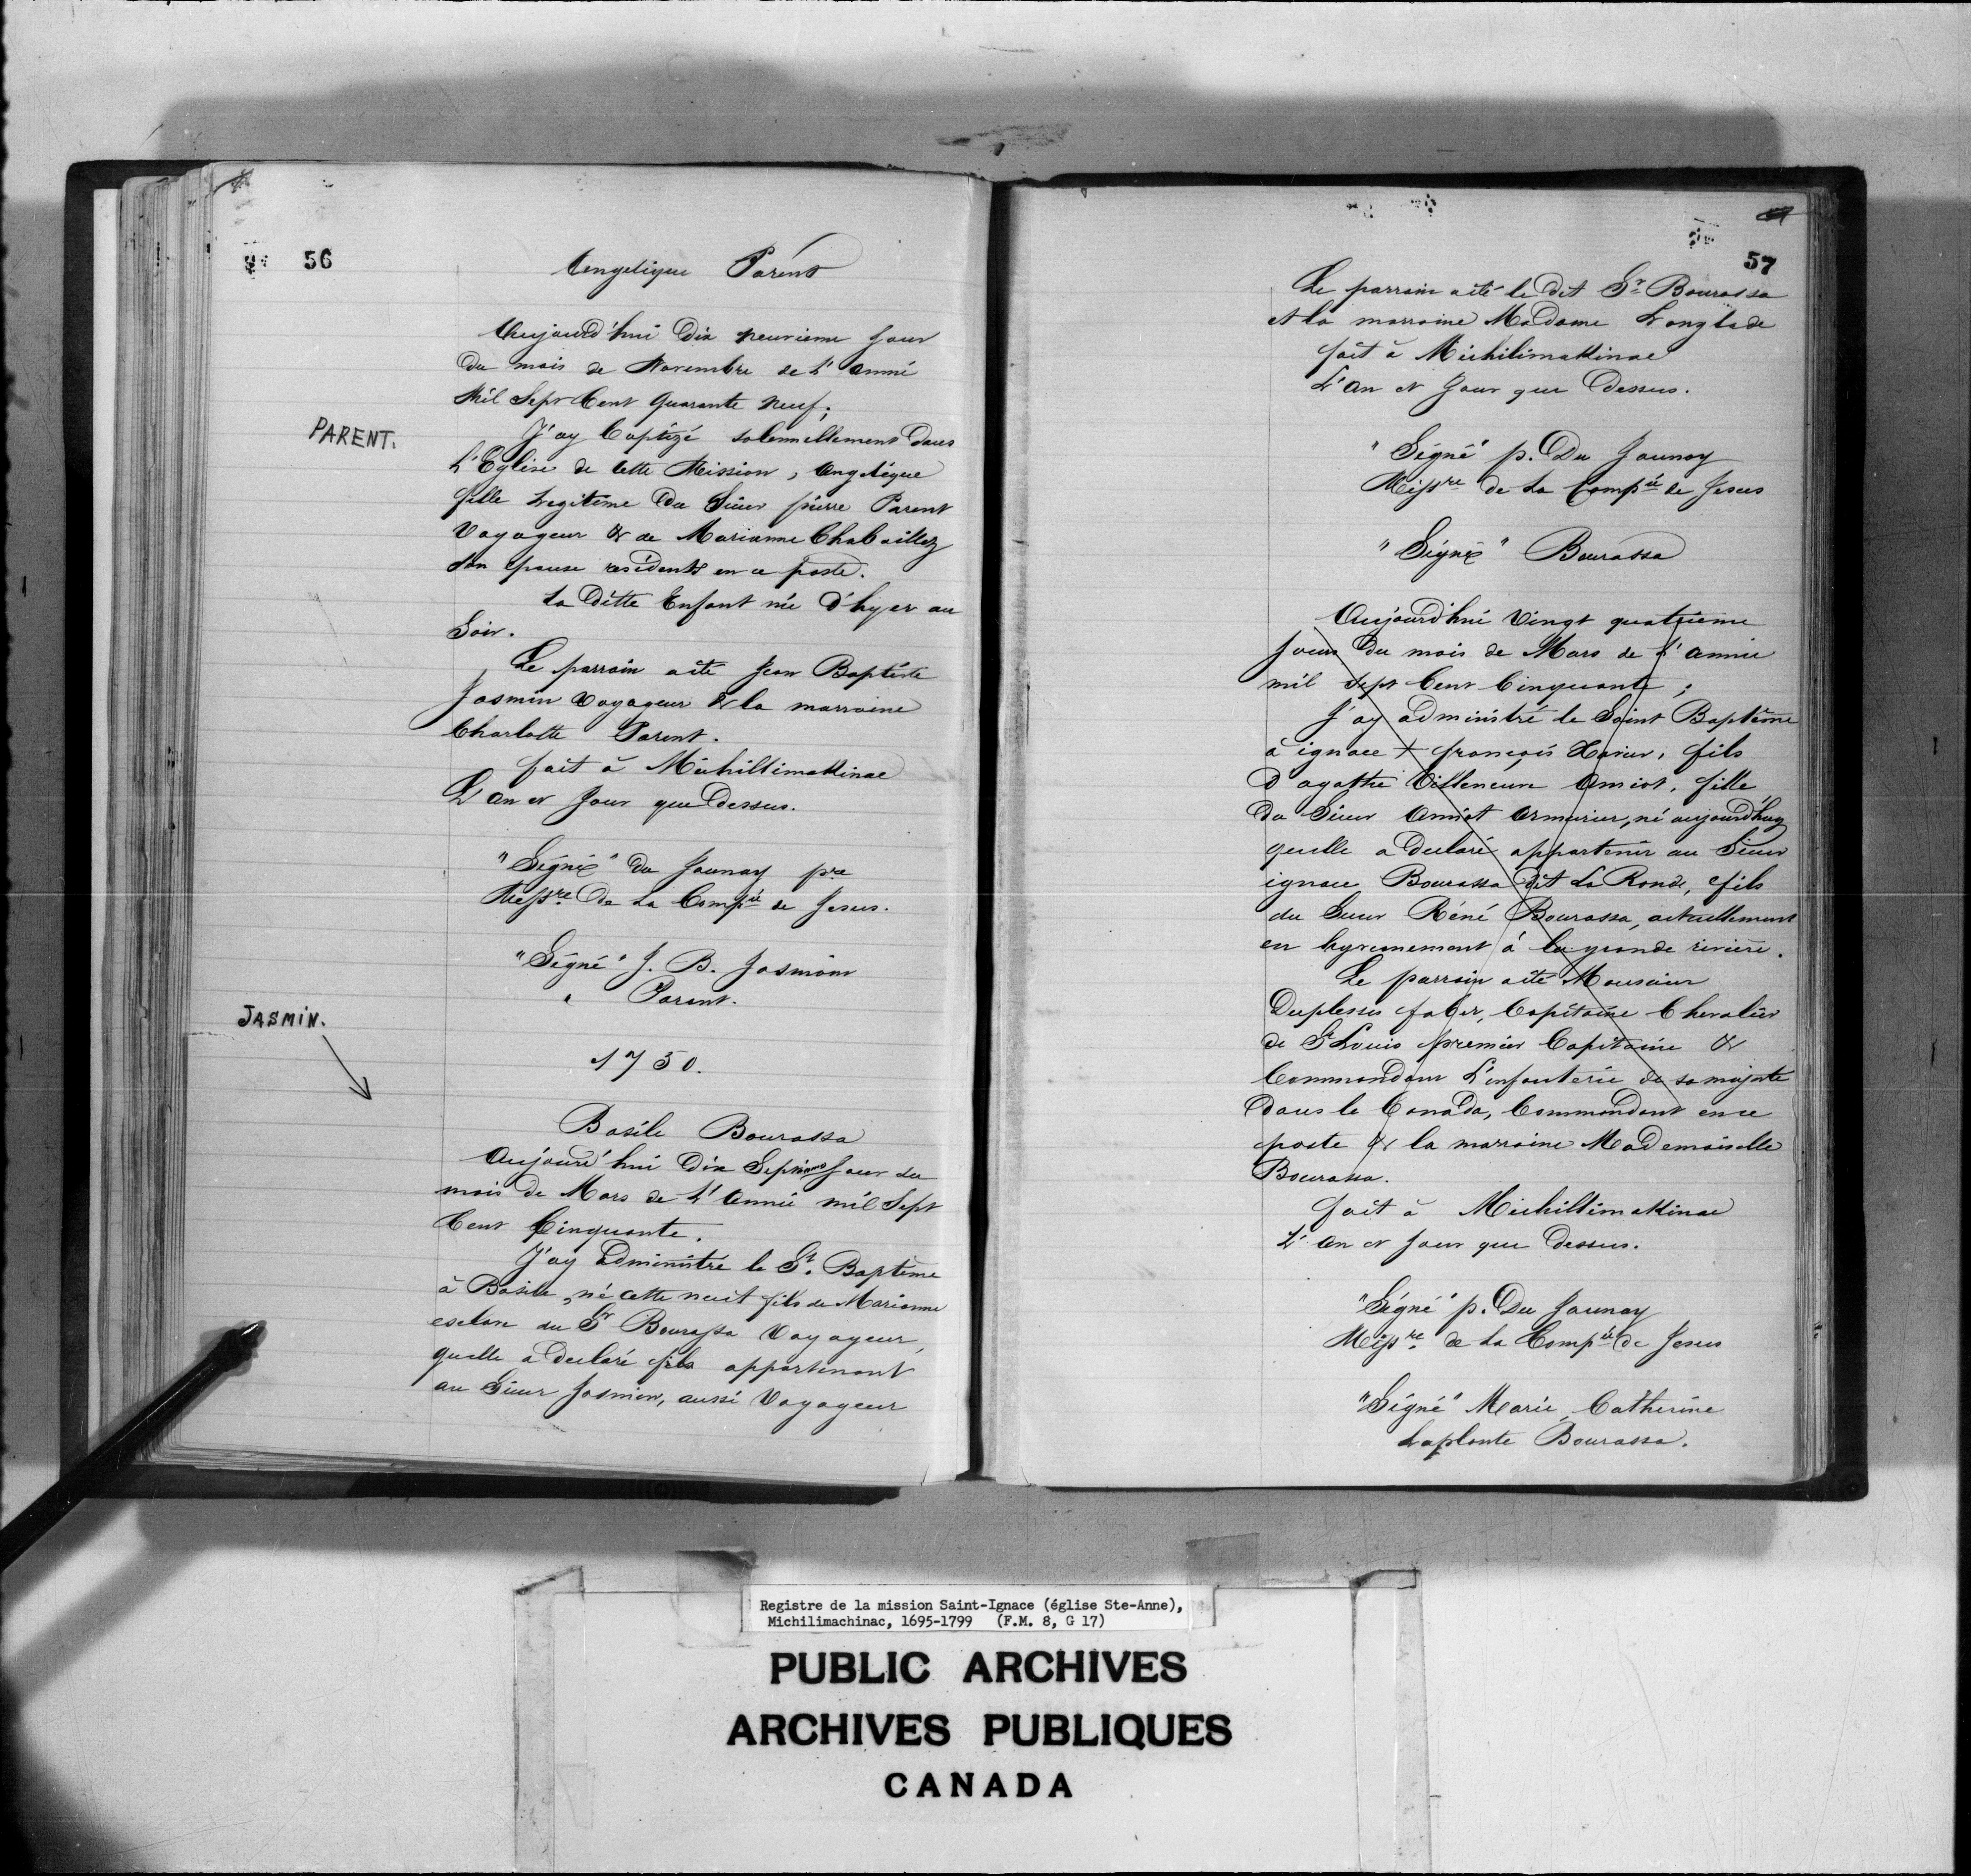 56
Angelique Parent
Aujourd'hui Dix neuvieme Jour
Du mois de Novembre de L'Anné
Mil Sept Cent Quarante Neuf;
PARENT.
J'ay Baptizé solemnellement dans
L'Eglise de Cette Mission, Angelique
fille Legitime Du Sieur pierre Parent
Voyageur & de Marianne Chaboillez
son epouse residents en ce poste.
La Ditte Enfant née D'hyer au
Soir.
Le parrain a été Jean Baptiste
Jasmin Voyageur & la marraine
Charlotte Parent.
fait à Michillimakinac
L'an et Jour que Dessus.
"Signé" du Jaunay pre
Missre De La Compie de Jesus.
"Signé" J. B. Jasmin
" Parent.
JASMIN.
1750.
Basile Bourassa
Aujourd'hui Dix Septieme Jour du
mois de Mars de L'Année mil Sept
Cent Cinquante.
J'ay Administré le St. Baptême
à Basile, né cette nuit fils de Marianne
esclave du Sr Bourassa Voyageur,
quelle a declaré fils appartenant
au Sieur Jasmin, aussi Voyageur
57
Le parrain a été le dit Sr Bourassa
et la marraine Madame Langlade
fait à Michilimakinac
L'an et Jour que Dessus.
"Signé" p. Du Jaunay
Missre de La Compie de Jesus
"Signé" Bourassa
Aujourd'hui Vingt quatrieme
Jour Du mois de Mars de L'année
mil Sept Cent Cinquante;
J'ay administré le Saint Baptême
à ignace + françois Xavier, fils
D'agathe Villeneuve Amiot, fille
Du Sieur Amiot Armurier, né aujourd'huy
quelle a declaré appartenir au Sieur
ignace Bourassa dit La Ronde, fils
du Sieur Réné Bourassa, actuellement
en hyvernement à la grande riviere.
Le parrain a été Monsieur
Duplessis faber, Capitaine Chevalier
de St Louis premier Capitaine &
Commandant L'infanterie de sa majesté
Dans le Canada, Commandant en ce
poste & la marraine Mademoiselle
Bourassa.
fait à Michillimakinac
L'an et Jour que Dessus.
"Signé" p. Du Jaunay
Missre de La Compie de Jesus
"Signé" Marie Catherine
Laplante Bourassa.
Registre de la mission Saint-Ignace (église Ste-Anne),
Michilimachinac, 1695-1799 (F.M. 8, G 17)
PUBLIC ARCHIVES
ARCHIVES PUBLIQUES
CANADA